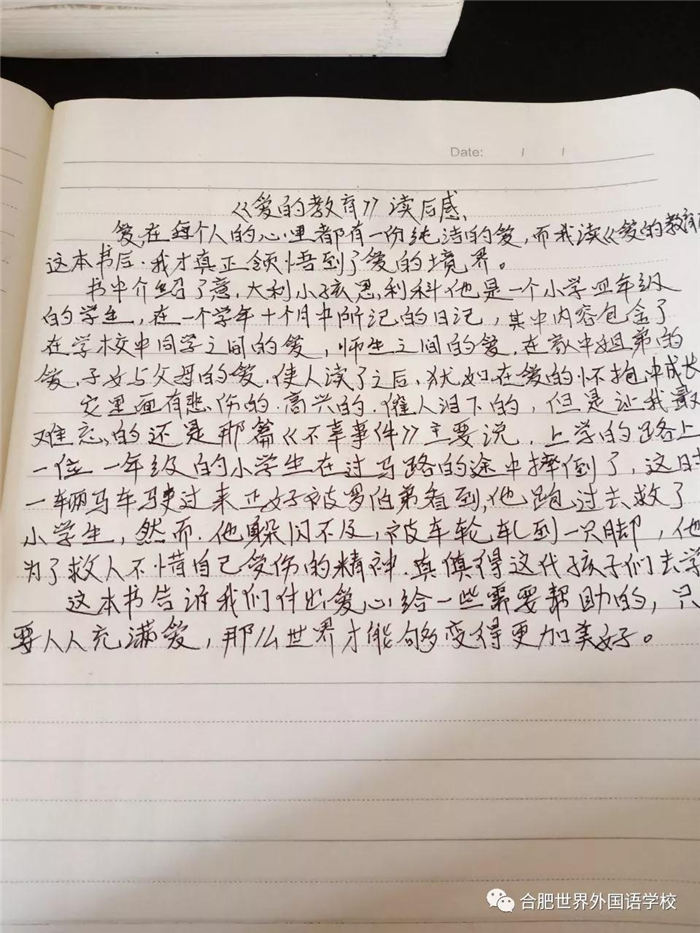 Date: / /
《爱的教育》读后感
爱,在每个人的心里都有一份纯洁的爱,而我读《爱的教育
这本书后,我才真正领悟到了爱的境界。
书中介绍了意大利小孩恩利科他是一个小学四年级
的学生,在一个学年十个月中所记的日记,其中内容包含了
在学校中同学之间的爱,师生之间的爱,在家中姐弟的
爱,子女与父母的爱,使人读了之后,犹如在爱的怀抱中成长
它里面有悲伤的,高兴的,催人泪下的,但是让我最
难忘的还是那篇《不幸事件》主要说,上学的路上
一位一年级的小学生在过马路的途中摔倒了,这时
一辆马车驶过来正好被罗伯弟看到,他跑过去救了
小学生,然而,他躲闪不及,被车轮轧到一只脚,他
为了救人不惜自己受伤的精神,真值得这代孩子们去学
这本书告诉我们付出爱心给一些需要帮助的,只
要人人充满爱,那么世界才能够变得更加美好。
合肥世界外国语学校